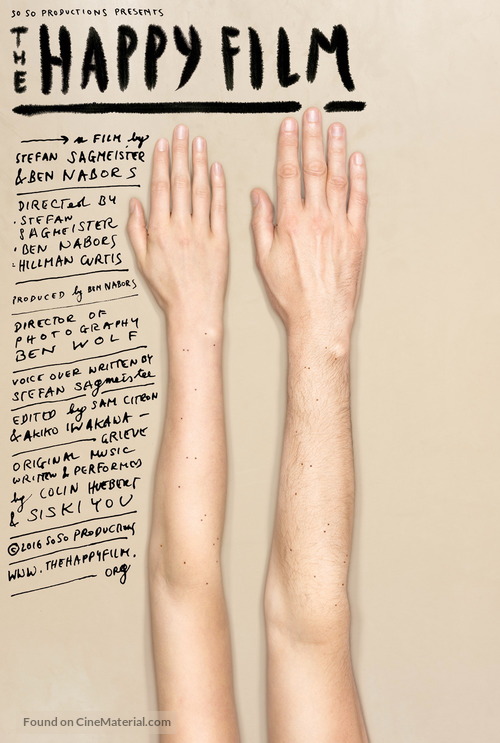 SO SO PRODUCTIONS PRESENTS
THE HAPPY FILM
a FILM by
STEFAN SAGMEISTER
& BEN NABORS
DIRECTED BY
·STEFAN
SAGMEISTER
·BEN NABORS
·HILLMAN CURTIS
PRODUCED by BEN NABORS
DIRECTOR OF
PHOTOGRAPHY
BEN WOLF
VOICE OVER WRITTEN BY
STEFAN Sagmeister
EDITED by SAM CITRON
& AKIKO IWAKAWA-
GRIEVE
ORIGINAL MUSIC
WRITTEN & PERFORMED
by COLIN HUEBERT
& SISKIYOU
©2016 SOSO PRODUCTIONS
WWW.THEHAPPYFILM.
ORG
Found on CineMaterial.com